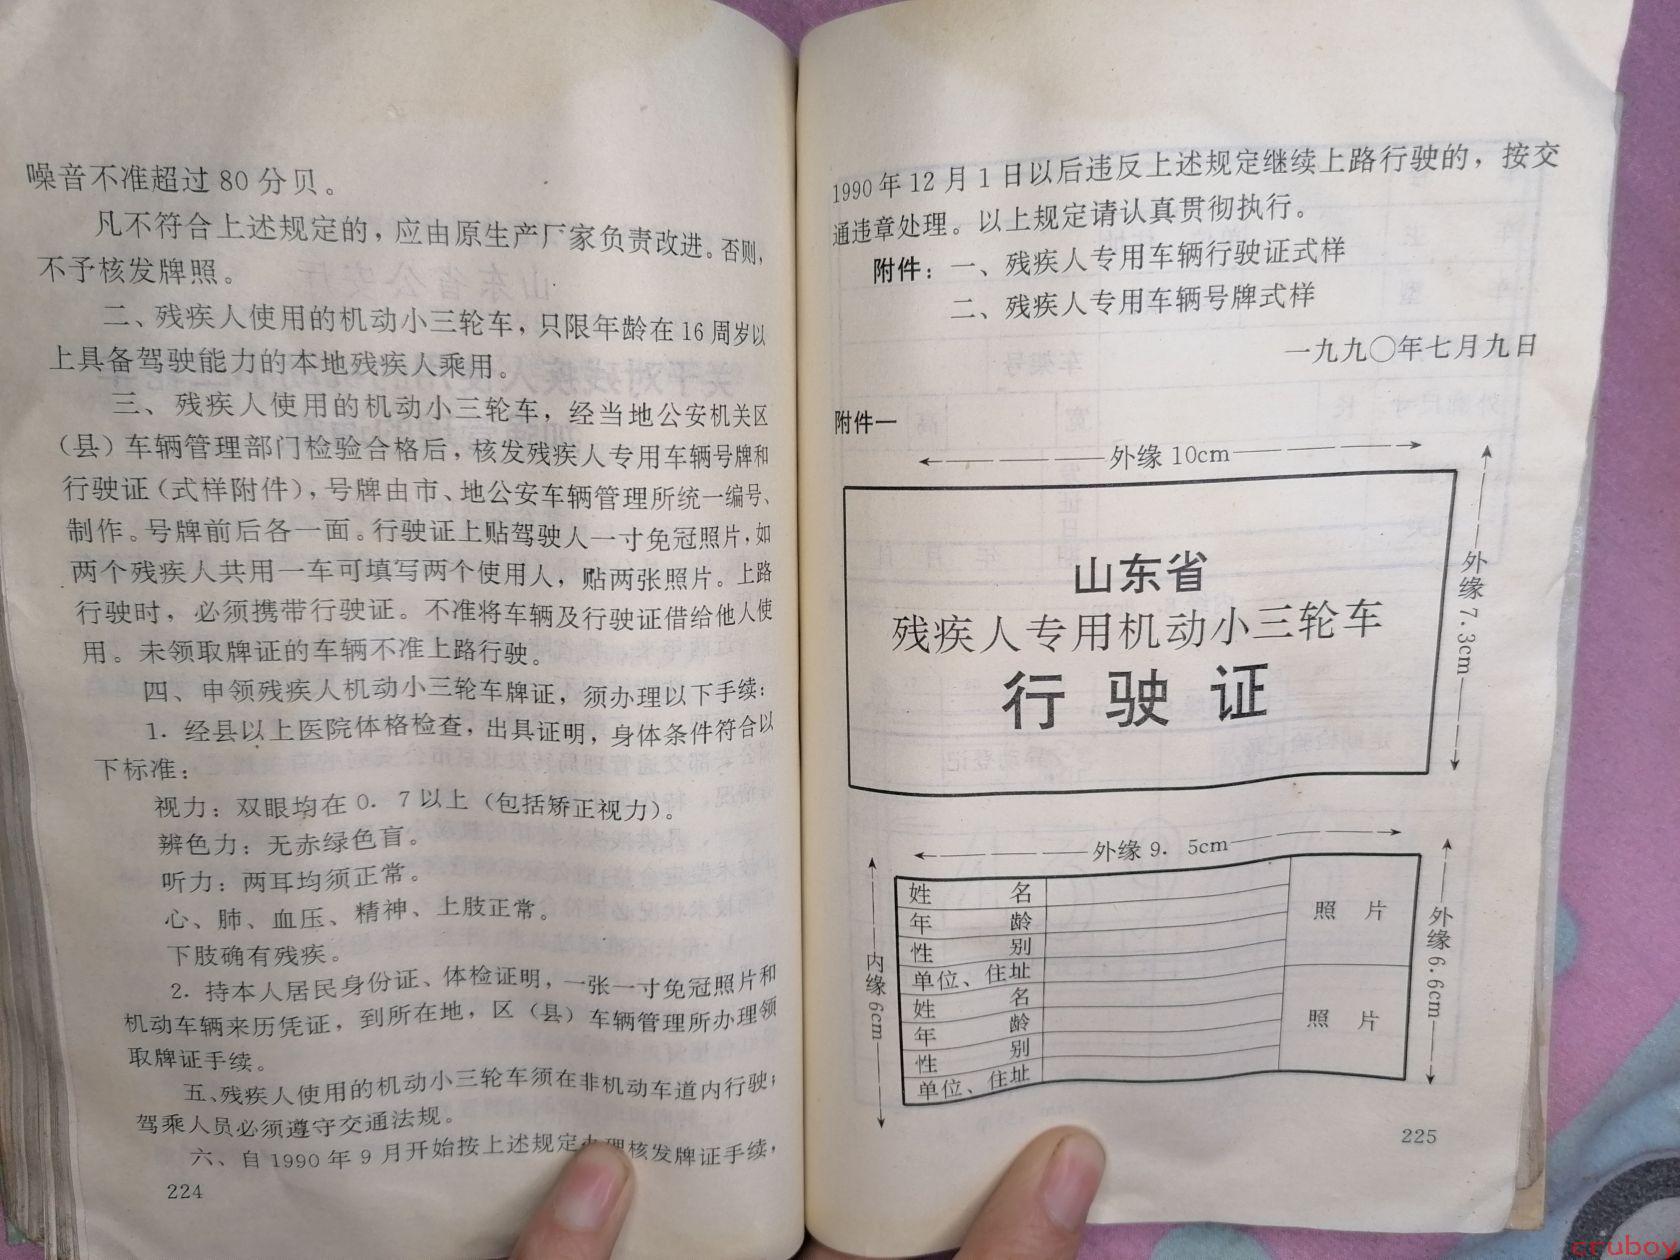 噪音不准超过80分贝。
凡不符合上述规定的，应由原生产厂家负责改进。否则，
不予核发牌照。
二、残疾人使用的机动小三轮车，只限年龄在16周岁以
上具备驾驶能力的本地残疾人乘用。
三、残疾人使用的机动小三轮车，经当地公安机关区
（县）车辆管理部门检验合格后，核发残疾人专用车辆号牌和
行驶证（式样附件），号牌由市、地公安车辆管理所统一编号、
制作。号牌前后各一面。行驶证上贴驾驶人一寸免冠照片，如
两个残疾人共用一车可填写两个使用人，贴两张照片。上路
行驶时，必须携带行驶证。不准将车辆及行驶证借给他人使
用。未领取牌证的车辆不准上路行驶。
四、申领残疾人机动小三轮车牌证，须办理以下手续：
1. 经县以上医院体格检查，出具证明，身体条件符合以
下标准：
视力：双眼均在0. 7以上（包括矫正视力）。
辨色力：无赤绿色盲。
听力：两耳均须正常。
心、肺、血压、精神、上肢正常。
下肢确有残疾。
2. 持本人居民身份证、体检证明，一张一寸免冠照片和
机动车辆来历凭证，到所在地，区（县）车辆管理所办理领
取牌证手续。
五、残疾人使用的机动小三轮车须在非机动车道内行驶；
驾乘人员必须遵守交通法规。
六、自1990年9月开始按上述规定办理核发牌证手续，
224
1990年12月1日以后违反上述规定继续上路行驶的，按交
通违章处理。以上规定请认真贯彻执行。
附件：一、残疾人专用车辆行驶证式样
二、残疾人专用车辆号牌式样
一九九〇年七月九日
附件一
外缘10cm
外缘7.3cm
山东省
残疾人专用机动小三轮车
行 驶 证
外缘9. 5cm
内缘6cm
外缘6.6cm
姓 名
年 龄
性 别
单位、住址
照 片
姓 名
年 龄
性 别
单位、住址
照 片
225
cruboy